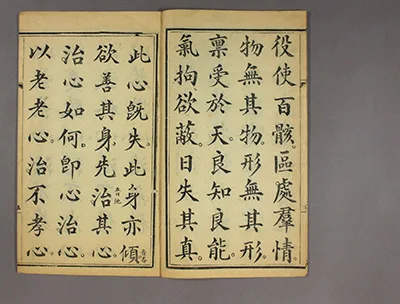 役使百骸。區處羣情。
物無其物。形無其形。
稟受於天。良知良能。
氣拘欲蔽。日失其真。
此心旣失。此身亦傾。
欲善其身。先治其心。
治心如何。卽心治心。
以老老心。治不孝心。